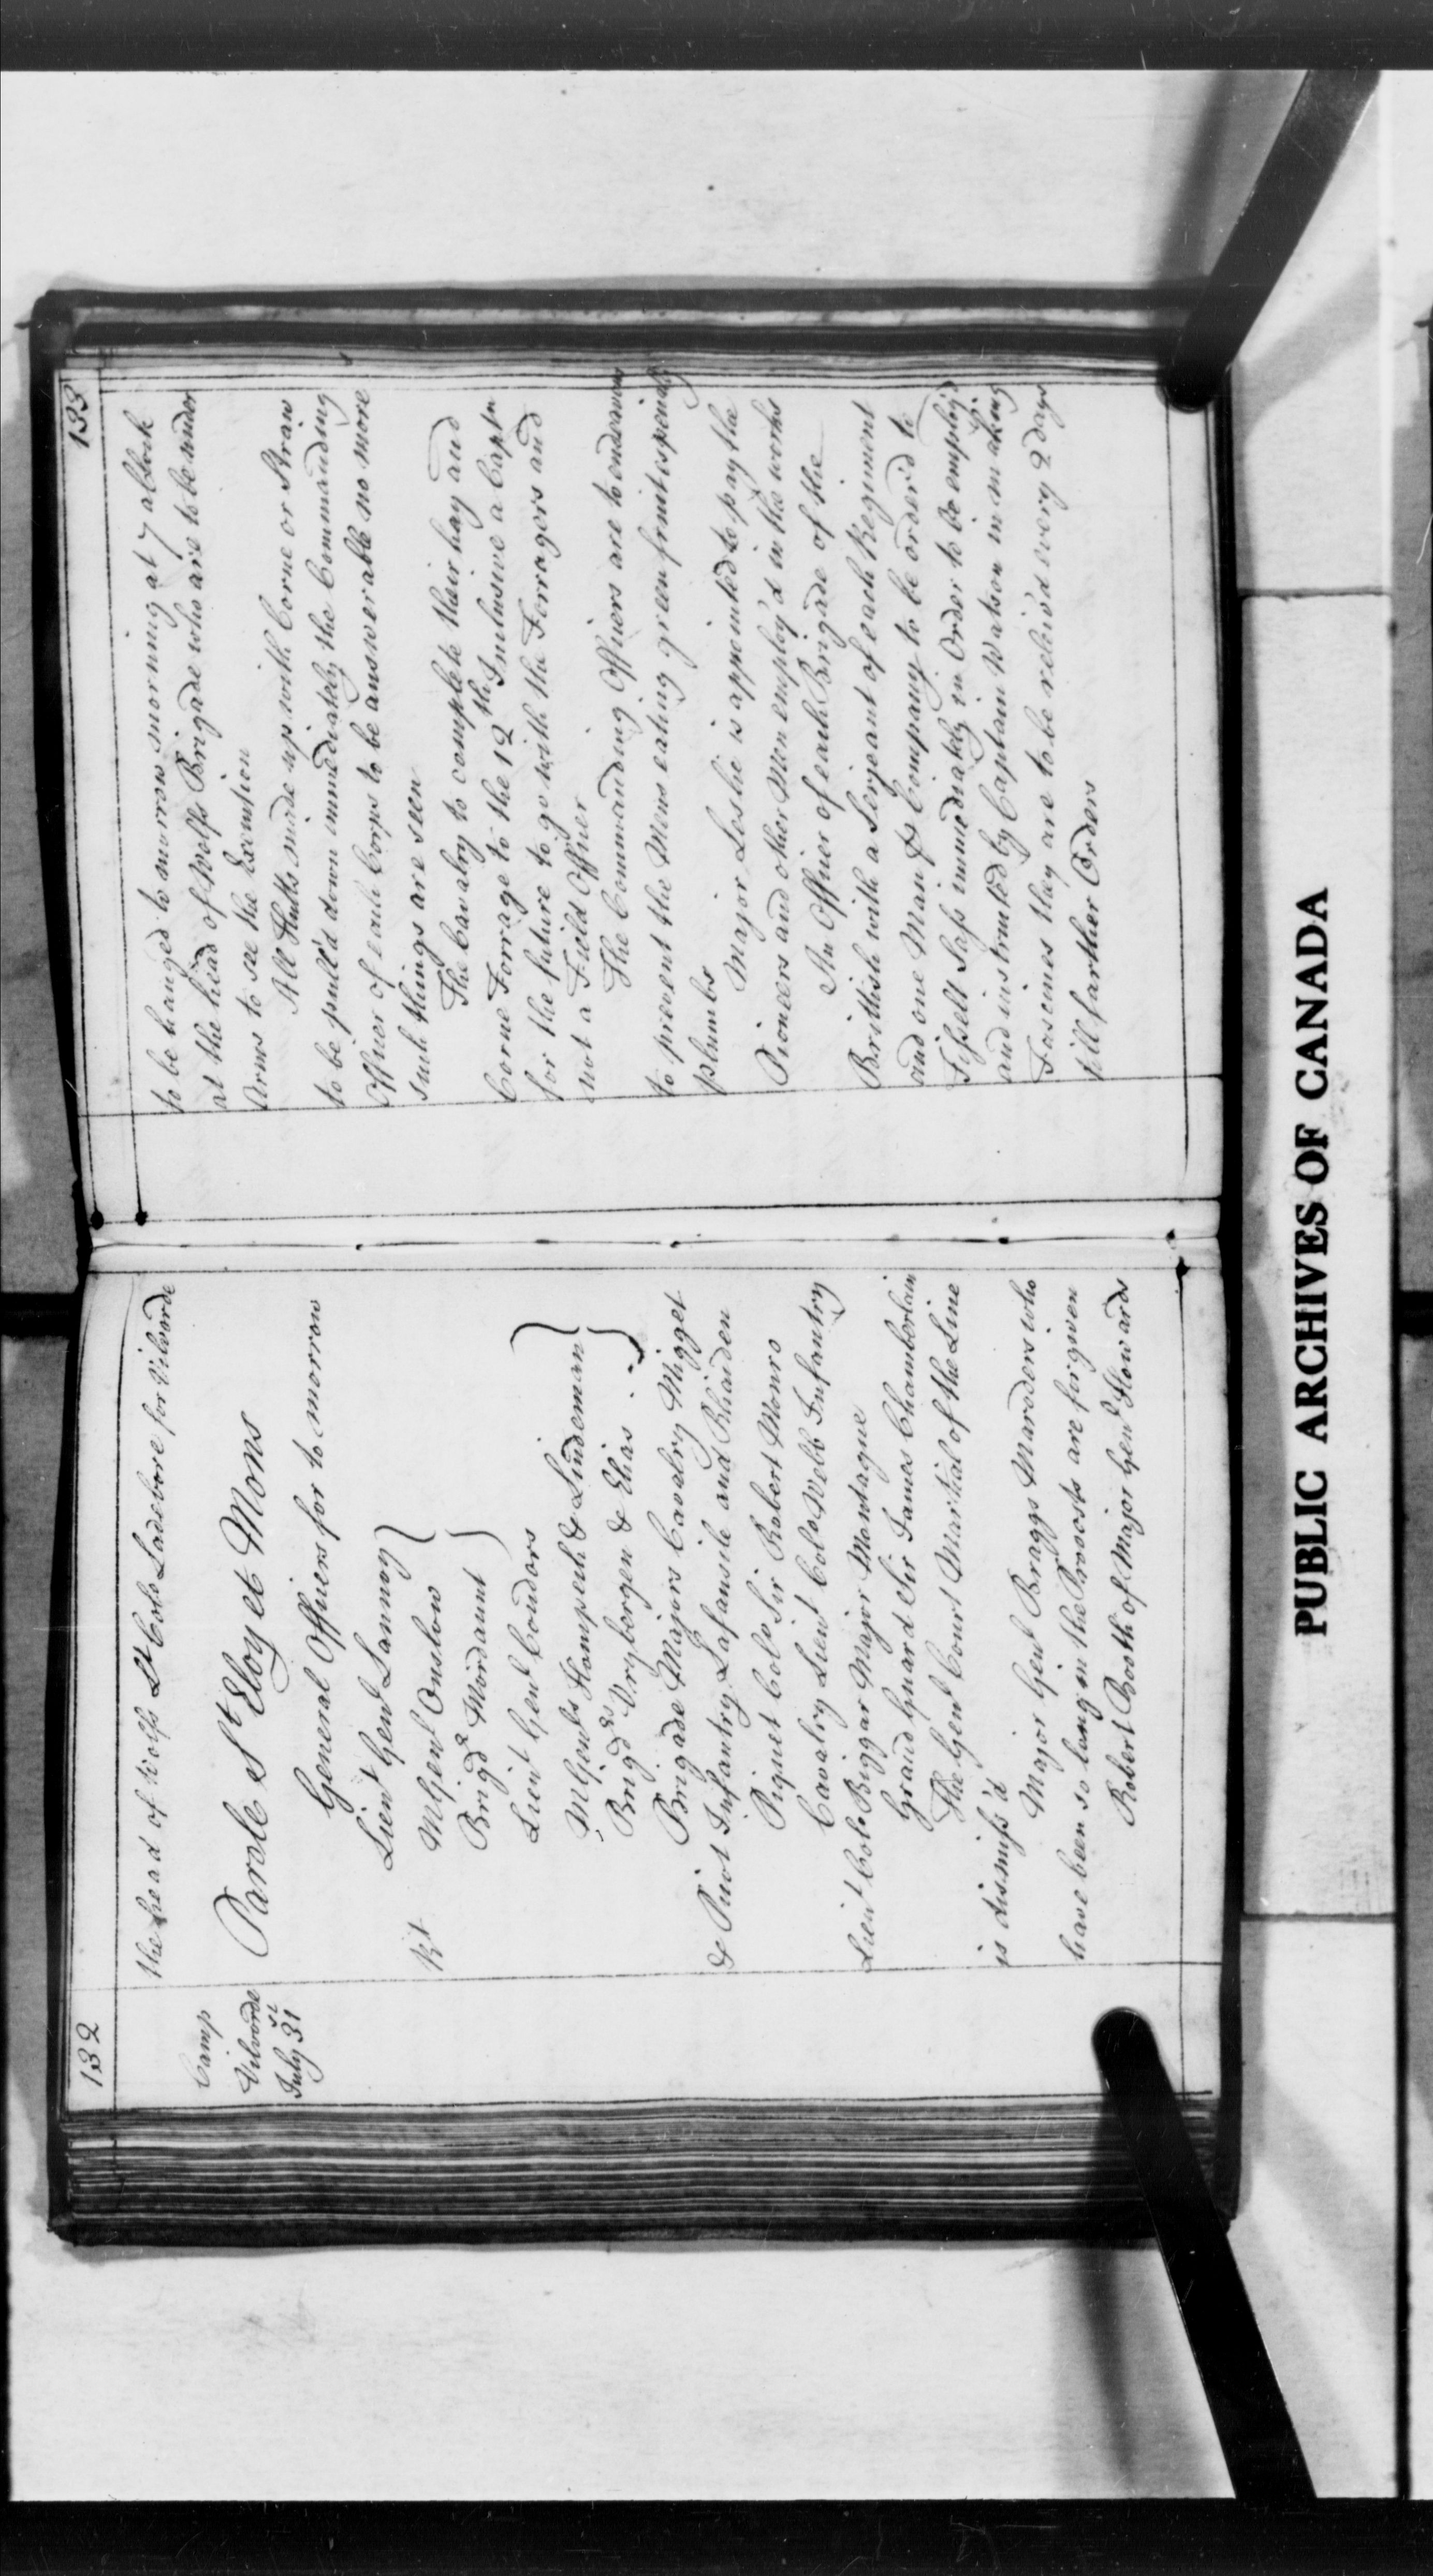 132
the head of Wolfs Lt Colo Ladebore for Vilvorde
Camp
Vilvorde
July 31st
Parole St Eloy et Mons
General Officers for to morrow
Lieut Genl Lannoy
Mljenl Onslow
Brigdr Mordaunt
Lieut Genl Coudors
Mljenls Hompech & Lindeman
Brigdrs Vrybergen & Elias
Brigade Majors Cavalry Migget
& Picot Infantry Lafansile and Rhaiden
Piquet Colo Sir Robert Monro
Cavalry Lieut Colo Webb Infantry
Lieut Colo Biggar Major Montague
Grand Guard Sir James Chamberlain
The Genl Court Martial of the Line
is dismiss'd
Major Genl Braggs Maroders who
have been so long in the Provosts are forgiven
Robert Booth of Major Genl Howards
133
to be hanged to morrow morning at 7 aClock
at the head of Wolfs Brigade who are to be under
Arms to see the Execution
All Hutts made up with Corne or Straw
to be pull'd down immediately the Commanding
Officer of each Corps to be answerable no more
such things are seen
The Cavalry to complete their hay and
Corne Forrage to the 12th Inclusive a Captn
for the future to go with the Forragers and
not a Field Officer
The Commanding Officers are to endeavour
to prevent the Mens eating green fruit especialy
plumbs
Major Leslie is appointed to pay the
Pioneers and other Men employ'd in the works
An Officer of each Brigade of the
Brittish with a Serjeant of each Regiment
and one Man Company to be order'd to
immediately in Order to be employ'd
and instructed by Captain Watson in making
Fascines they are to be reliev'd every 2 days
till farther Orders
PUBLIC ARCHIVES OF CANADA